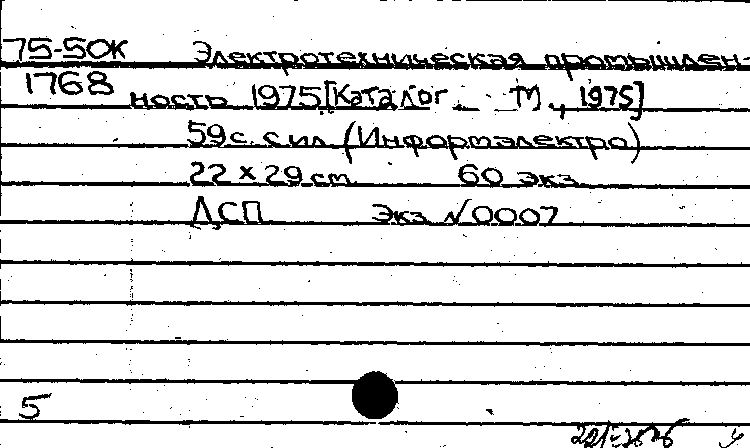 75-50К Электротехническая промышлен-
1768 ность 1975 [Каталог. М., 1975]
59 с. с ил. (Информэлектро)
22 x 29 cm 60 экз.
ДСП Экз. № 0007
5